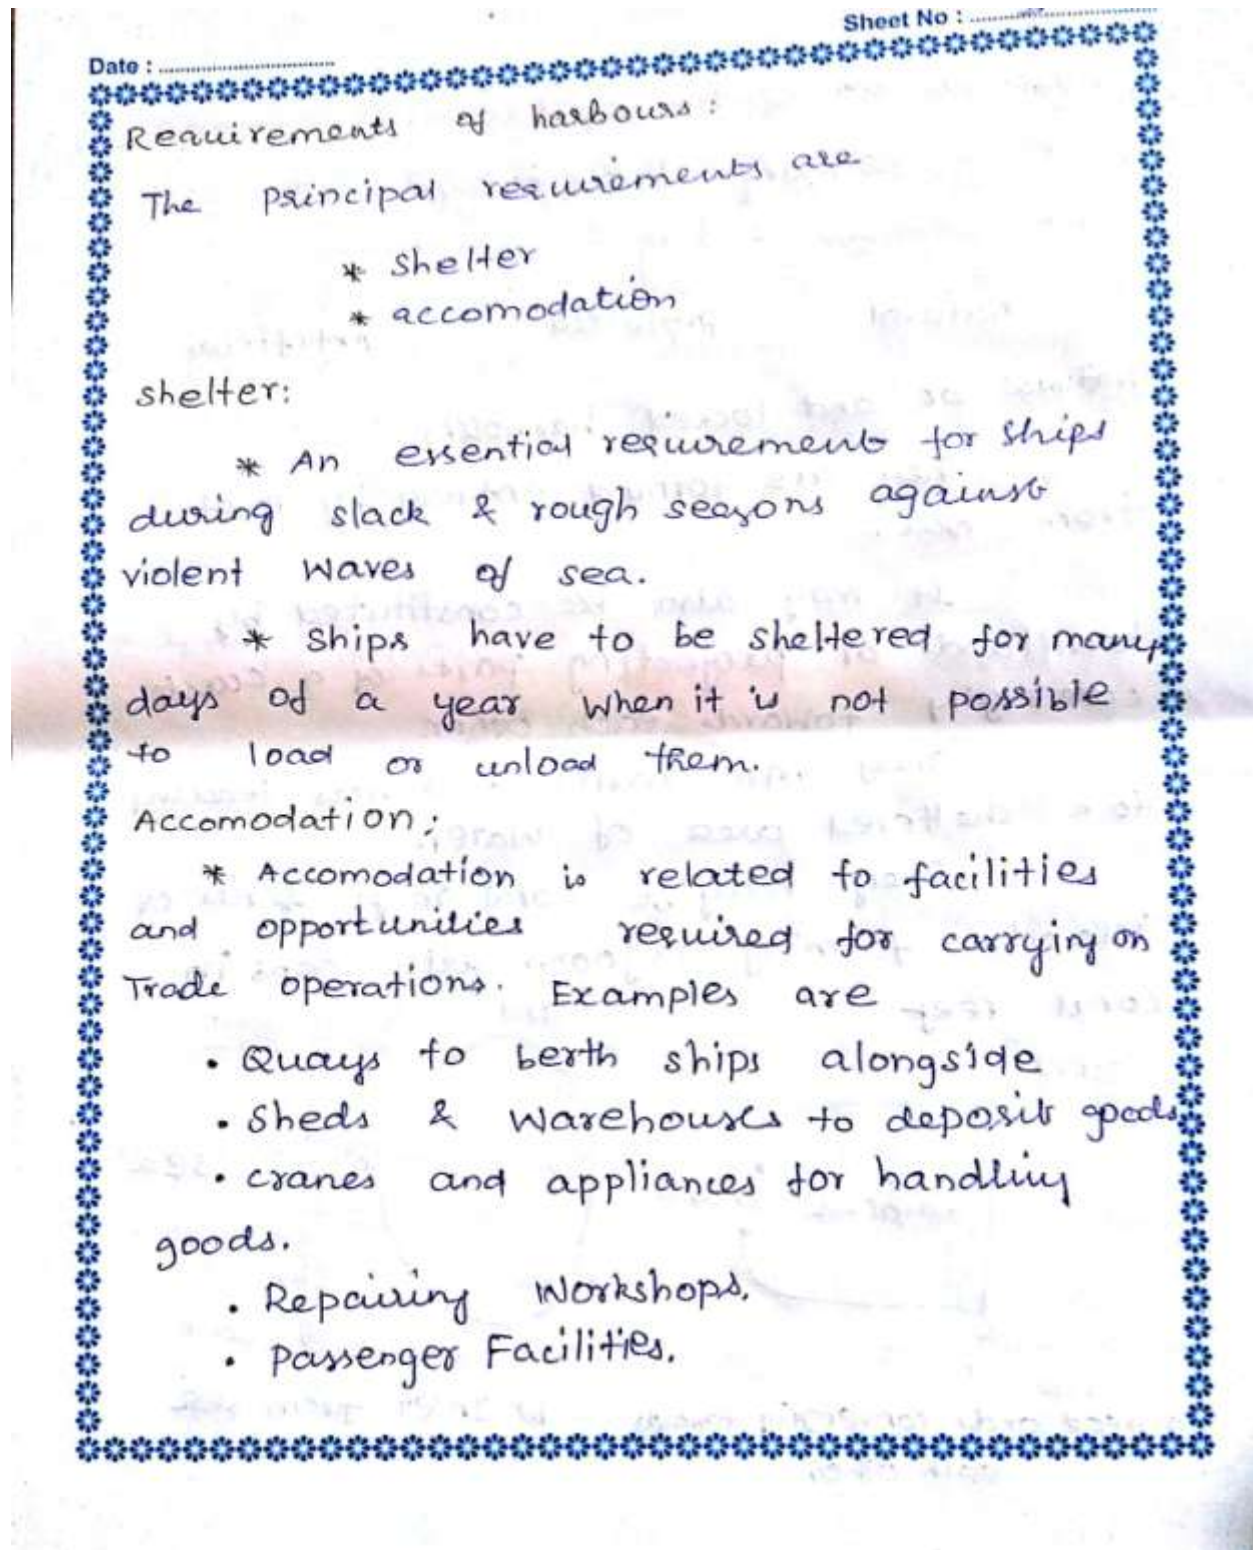 Sheet No :
Date :
Requirements of harbours:
The Principal requirements are
* Shelter
* accomodation
Shelter:
* An essential requirement for ships
during slack & rough seasons against
violent waves of sea.
* Ships have to be sheltered for many
days of a year when it is not possible
to load or unload them.
Accomodation:
* Accomodation is related to facilities
and opportunities required for carrying on
Trade operations. Examples are
• Quays to berth ships alongside
• Sheds & Warehouses to deposit goods
• cranes and appliances for handling
goods.
• Repairing Workshops.
• Passenger Facilities.